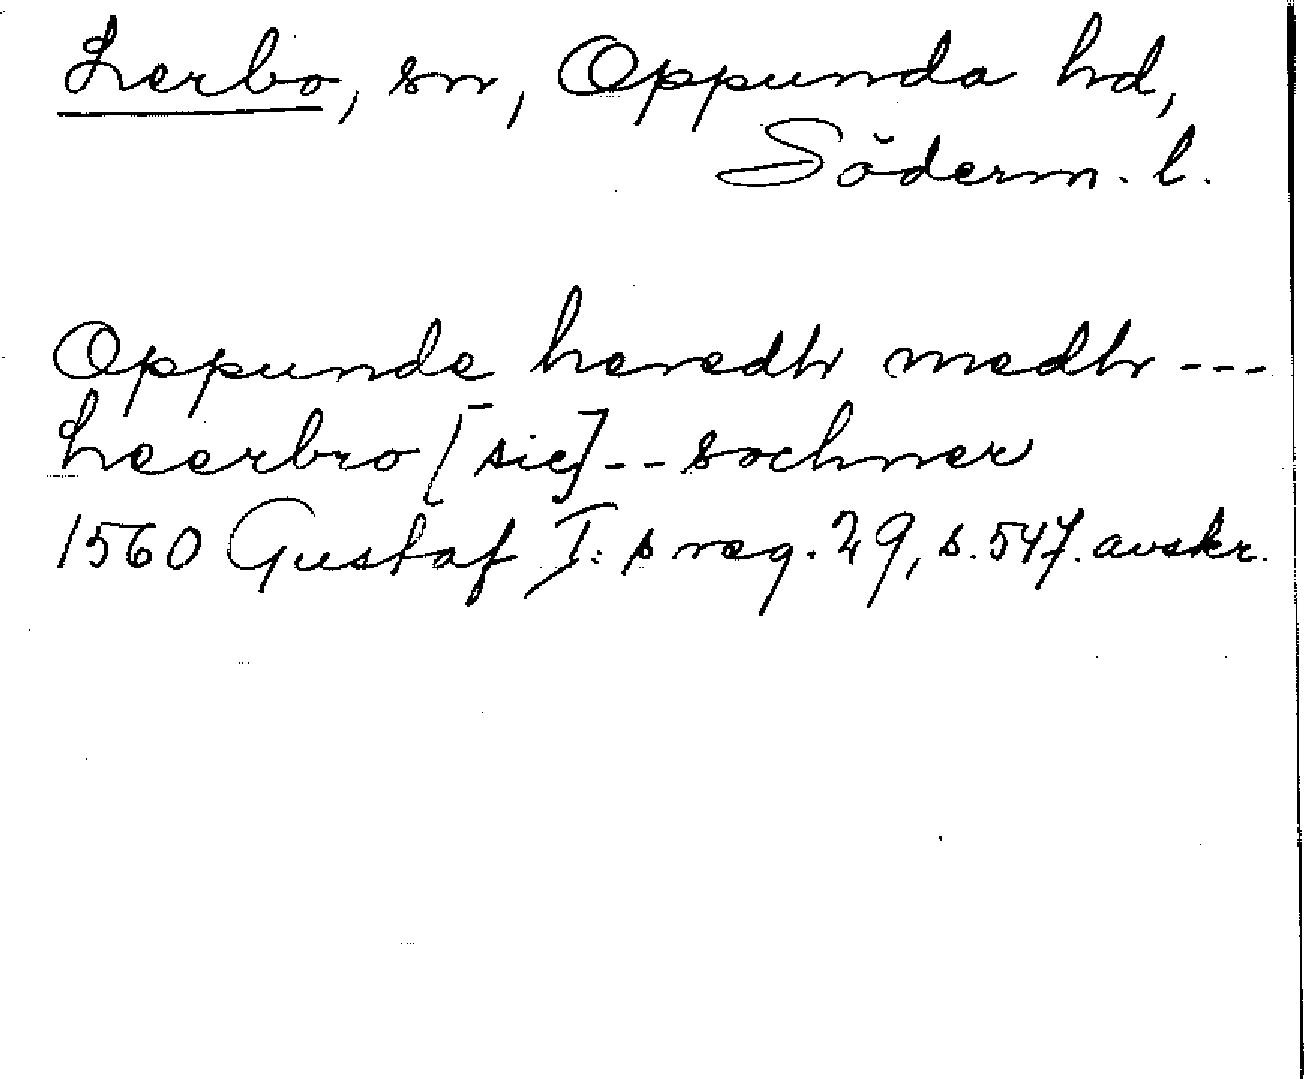 Lerbo, sn, Oppunda hd,
Söderm. l.
Oppunde heredtr medtr ---
Leerbro [sic] -- sochner
1560 Gustaf I:s reg. 29, s. 547. avskr.